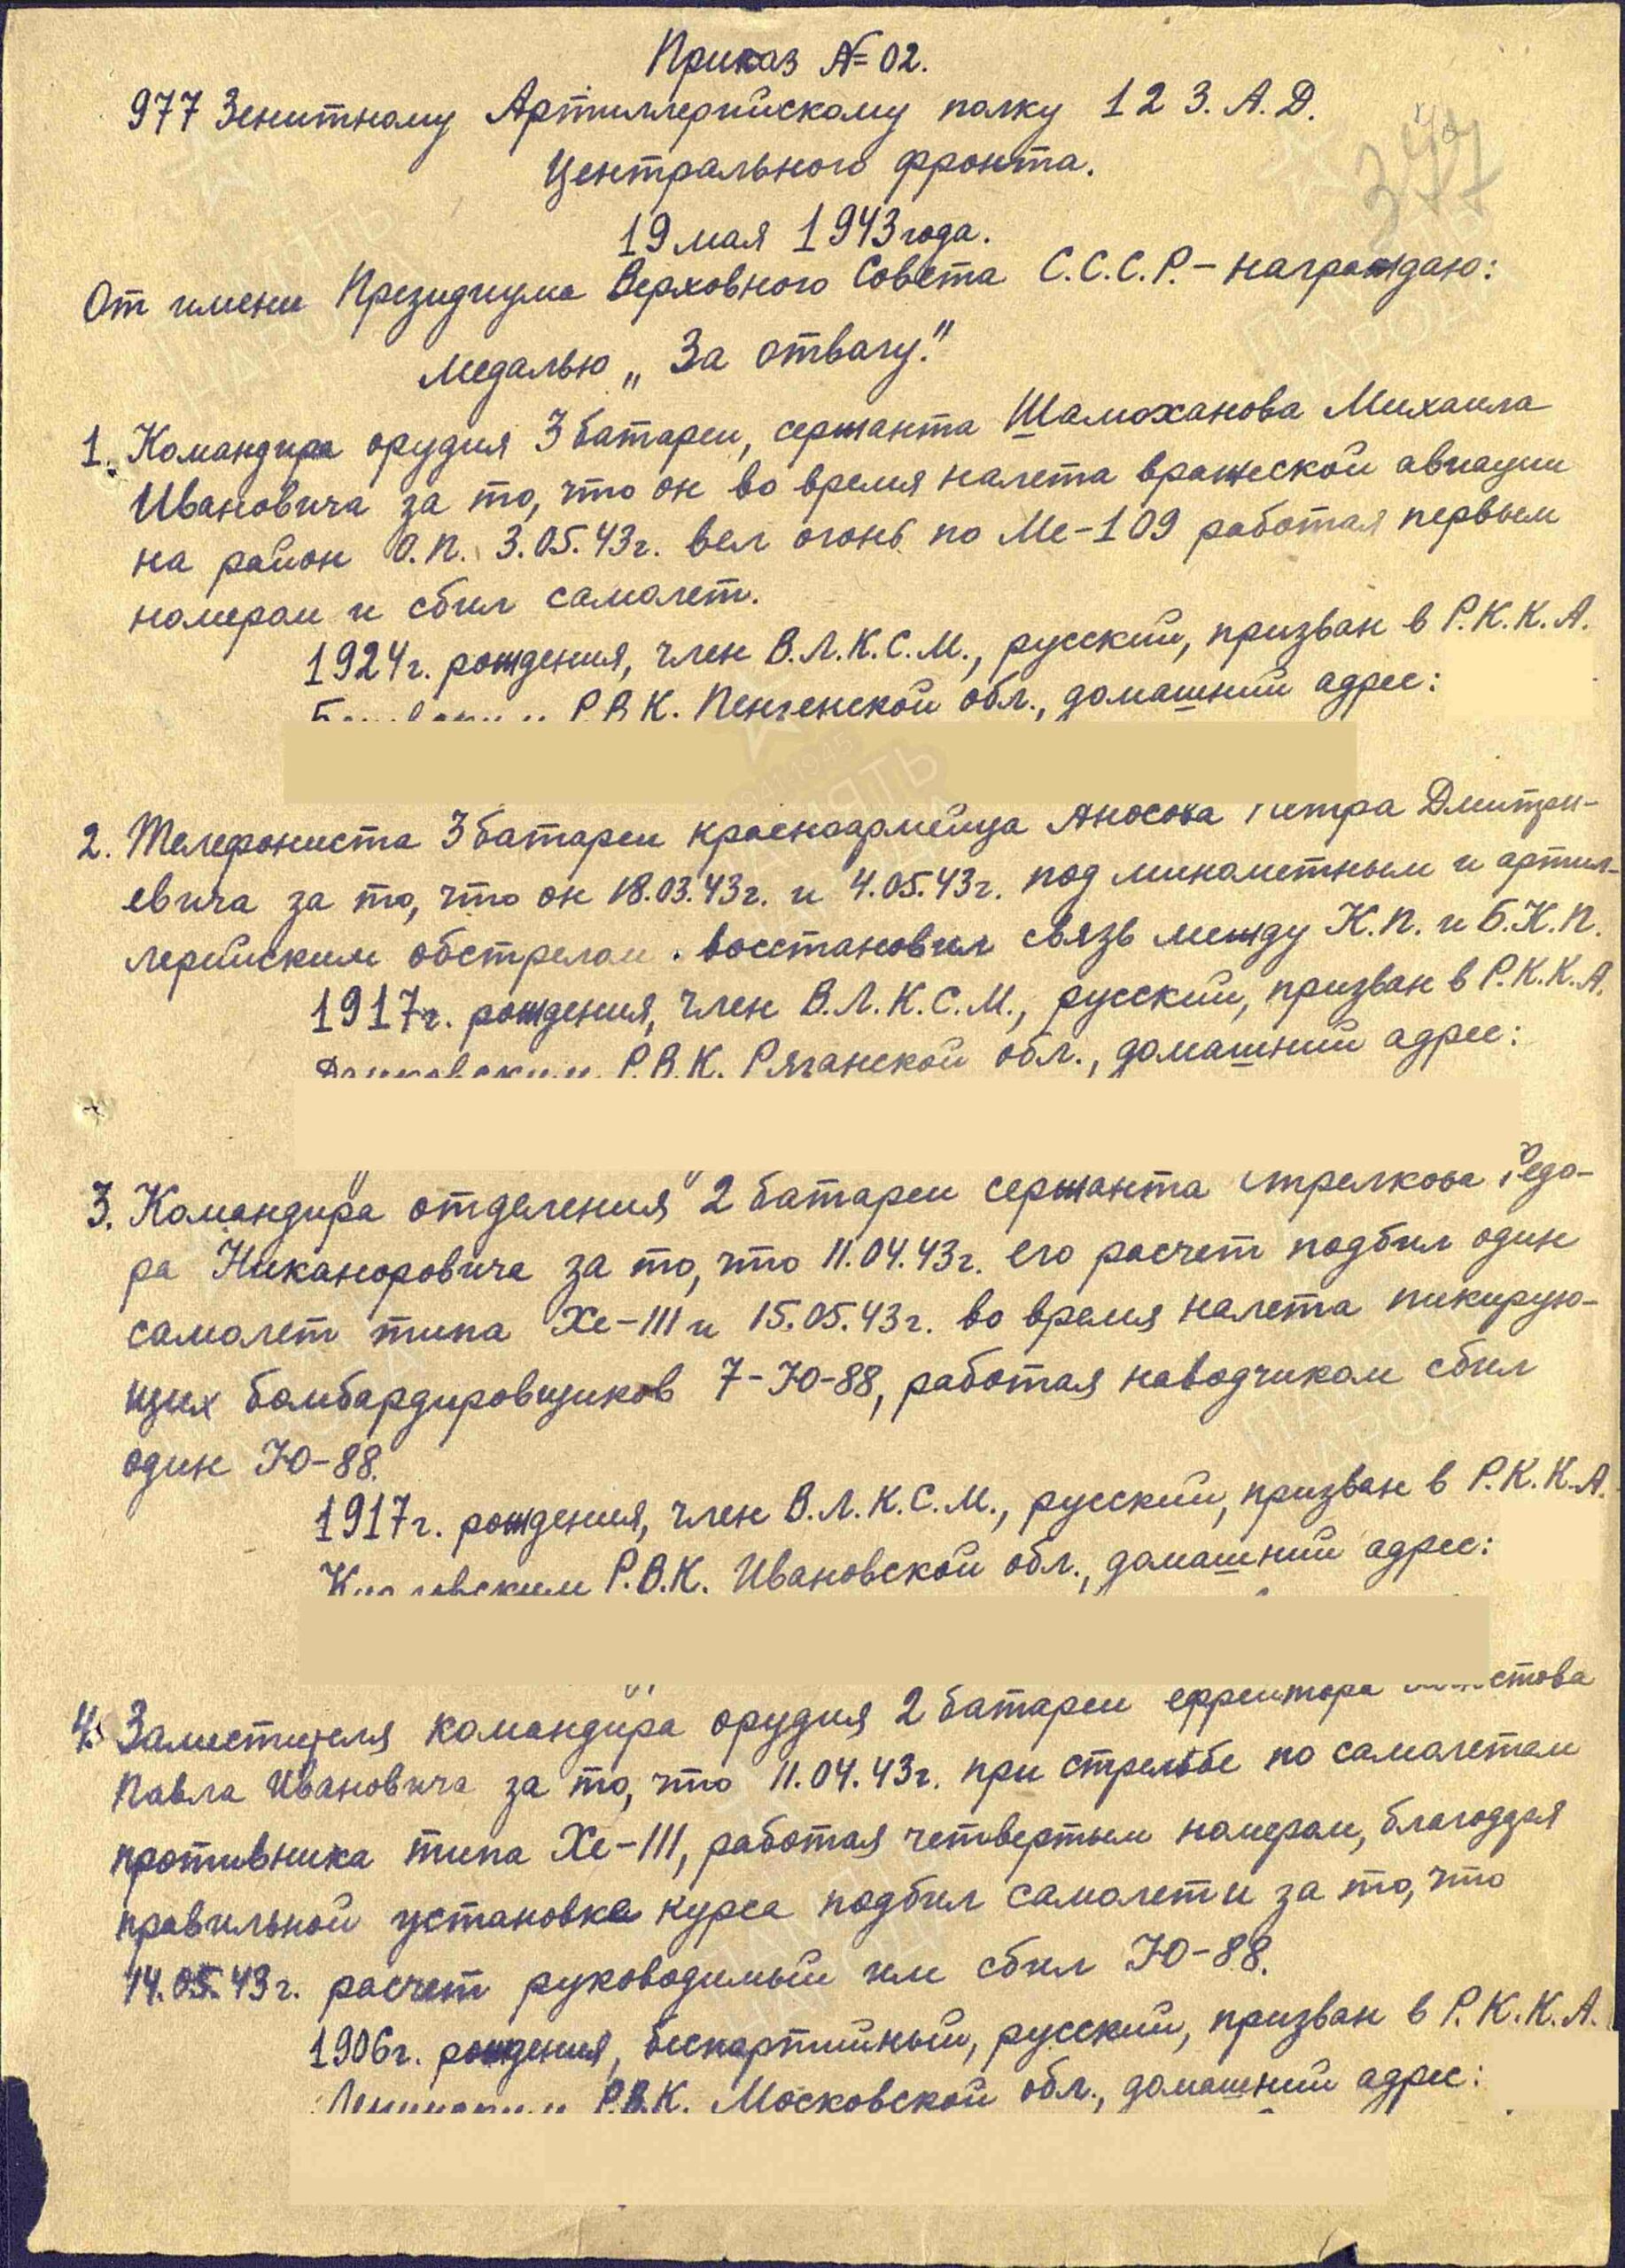 Приказ №02.
977 Зенитному Артиллерийскому полку 12 З.А.Д.
Центрального фронта.
19 мая 1943 года.
377
От имени Президиума Верховного Совета С.С.С.Р.- награждаю:
медалью „За отвагу."
1. Командира орудия 3 батареи, сержанта Шамаханова Михаила
Ивановича за то, что он во время налета вражеской авиации
на район О.П. 3.05.43г. вел огонь по Ме-109 работая первым
номером и сбил самолет.
1924г. рождения, член В.Л.К.С.М., русский, призван в Р.К.К.А.
Р.В.К. Пензенской обл., домашний адрес:
2. Телефониста 3 батареи красноармейца Аносова Петра Дмитри-
евича за то, что он 18.03.43г. и 4.05.43г. под минометным и артил-
лерийским обстрелом восстановил связь между К.П. и Б.К.П.
1917г. рождения, член В.Л.К.С.М., русский, призван в Р.К.К.А.
Данковским Р.В.К. Рязанской обл., домашний адрес:
3. Командира отделения 2 батареи сержанта Стрелкова Федо-
ра Никаноровича за то, что 11.04.43г. его расчет подбил один
самолет типа Хе-111 и 15.05.43г. во время налета пикирую-
щих бомбардировщиков 7-Ю-88, работая наводчиком сбил
один Ю-88.
1917г. рождения, член В.Л.К.С.М., русский, призван в Р.К.К.А.
Р.В.К. Ивановской обл., домашний адрес:
4. Заместителя командира орудия 2 батареи ефрейтора
Павла Ивановича за то, что 11.04.43г. при стрельбе по самолетам
противника типа Хе-111, работая четвертым номером, благодаря
правильной установке курса подбил самолет и за то, что
14.05.43г. расчет руководимый им сбил Ю-88.
1906г. рождения, беспартийный, русский, призван в Р.К.К.А.
Ленинским Р.В.К. Московской обл., домашний адрес: